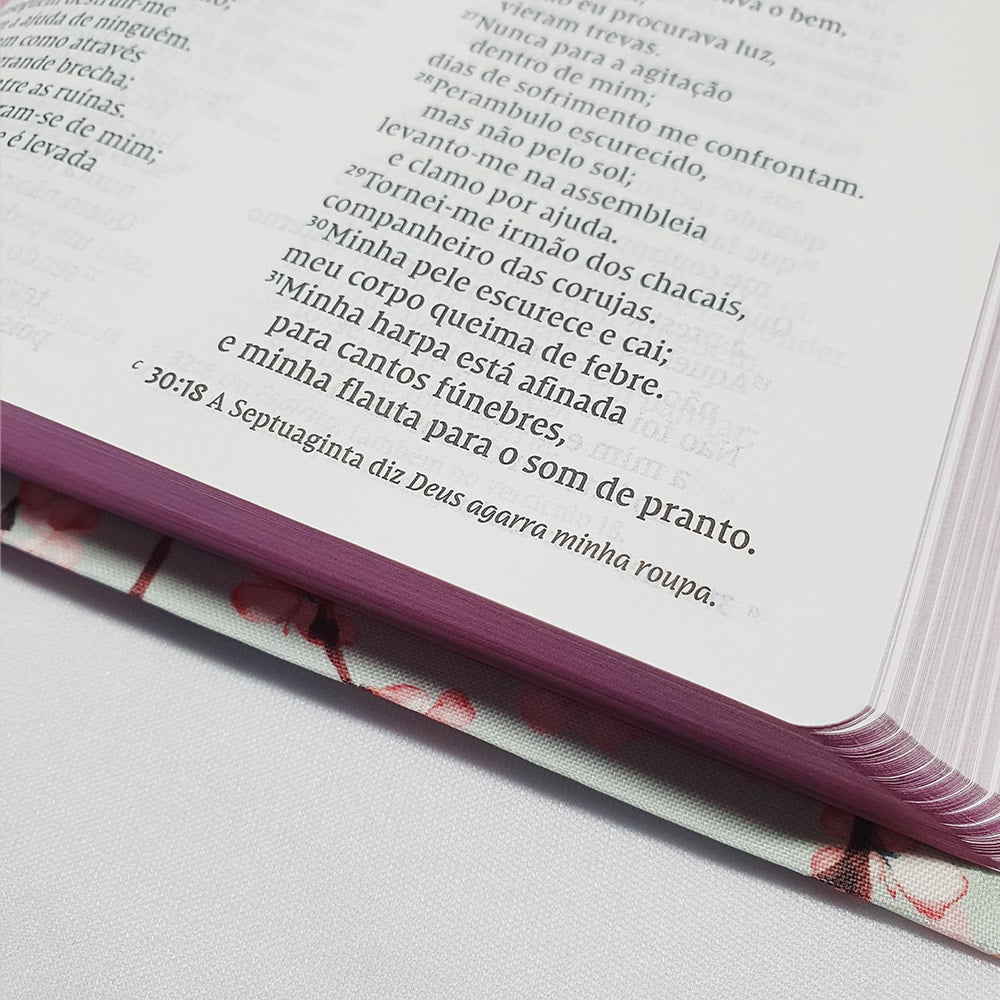 a ajuda de ninguém.
como através
grande brecha;
entre as ruínas.
-se de mim;
é levada
o bem,
eu procurava luz,
vieram trevas.
²⁷Nunca para a agitação
dentro de mim;
dias de sofrimento me confrontam.
²⁸Perambulo escurecido,
mas não pelo sol;
levanto-me na assembleia
e clamo por ajuda.
²⁹Tornei-me irmão dos chacais,
companheiro das corujas.
³⁰Minha pele escurece e cai;
meu corpo queima de febre.
³¹Minha harpa está afinada
para cantos fúnebres,
e minha flauta para o som de pranto.
c 30:18 A Septuaginta diz Deus agarra minha roupa.